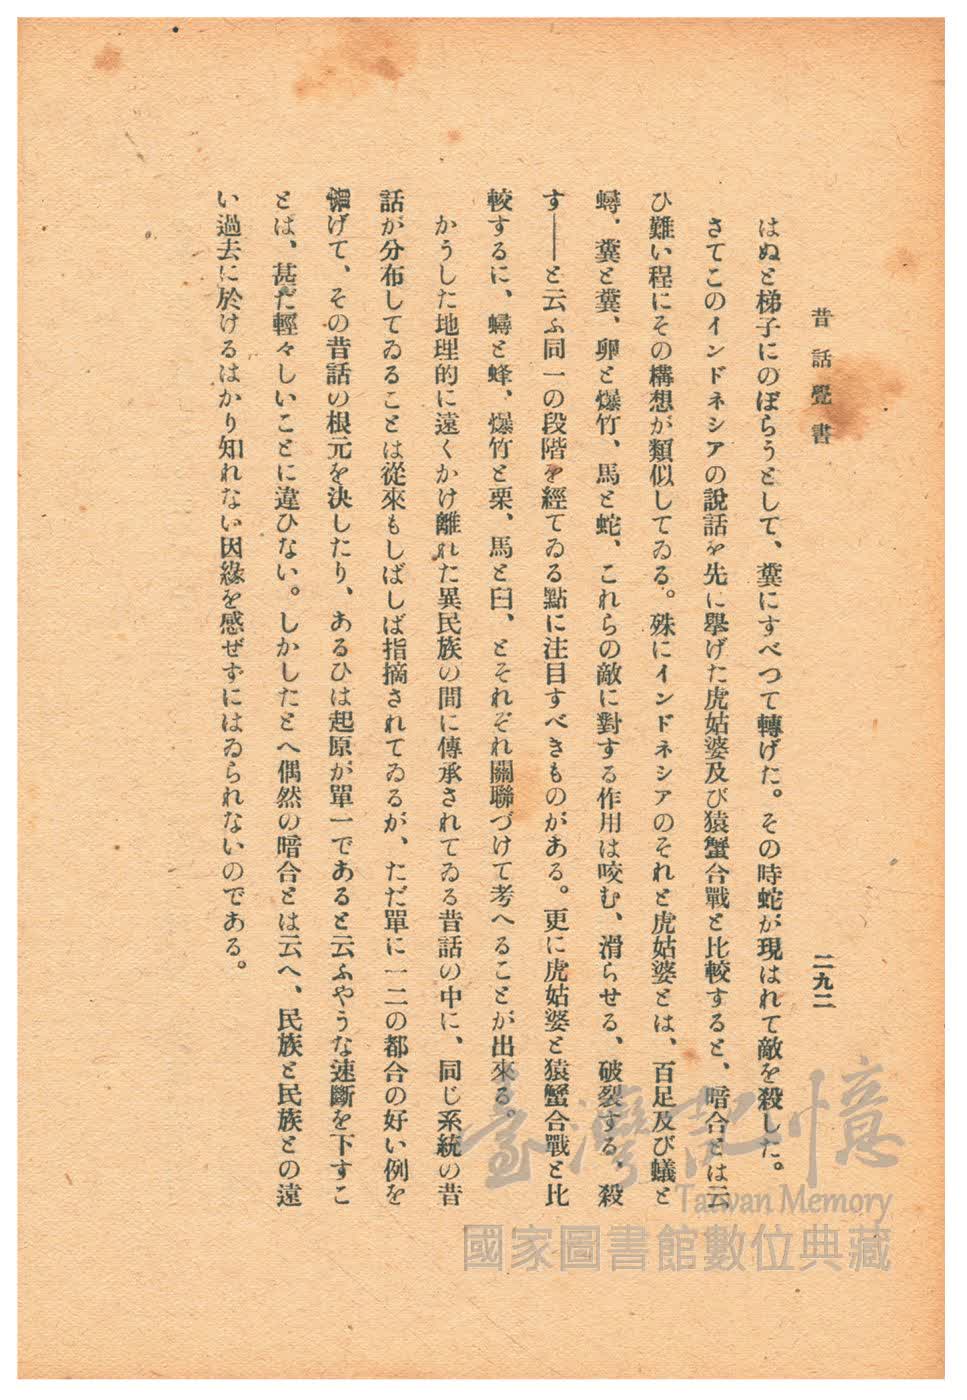 昔話覺書
二九二
はぬと梯子にのぼらうとして、糞にすべつて轉げた。その時蛇が現はれて敵を殺した。
さてこのインドネシアの說話を先に擧げた虎姑婆及び猿蟹合戰と比較すると、暗合とは云
ひ難い程にその構想が類似してゐる。殊にインドネシアのそれと虎姑婆とは、百足及び蟻と
蟳、糞と糞、卵と爆竹、馬と蛇、これらの敵に對する作用は咬む、滑らせる、破裂する、殺
す——と云ふ同一の段階を經てゐる點に注目すべきものがある。更に虎姑婆と猿蟹合戰と比
較するに、蟳と蜂、爆竹と栗、馬と臼、とそれぞれ關聯づけて考へることが出來る。
かうした地理的に遠くかけ離れた異民族の間に傳承されてゐる昔話の中に、同じ系統の昔
話が分布してゐることは從來もしばしば指摘されてゐるが、ただ單に一二の都合の好い例を
げて、その昔話の根元を決したり、あるひは起原が單一であると云ふやうな速斷を下すこ
とは、甚だ輕々しいことに違ひない。しかしたとへ偶然の暗合とは云へ、民族と民族との遠
い過去に於けるはかり知れない因緣を感ぜずにはゐられないのである。
臺灣記憶
Taiwan Memory
國家圖書館數位典藏